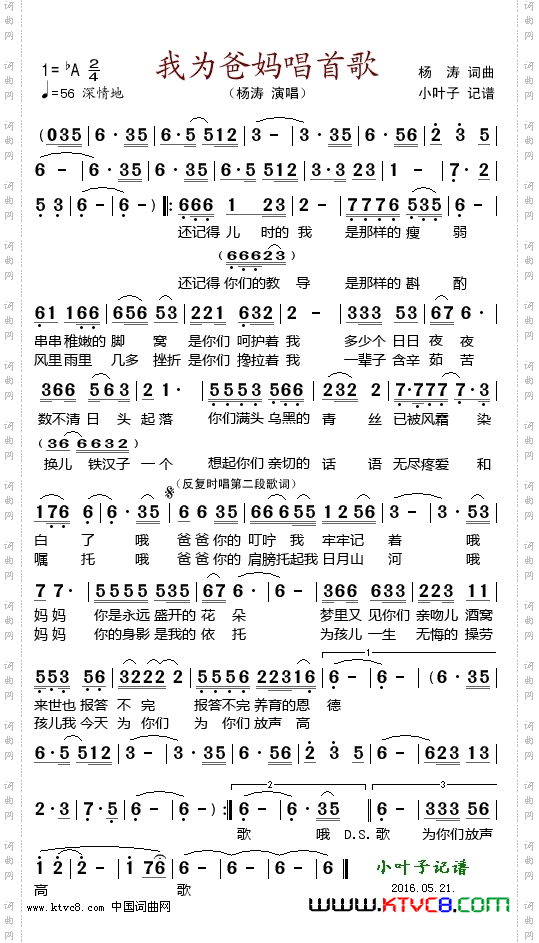 我为爸妈唱首歌
1=♭A 2/4
♩=56 深情地
（杨涛 演唱）
杨 涛 词曲
小叶子 记谱
(035 | 6·35 | 6·5 512 | 3- | 3·35 | 6·56 | 2 3 5 |
6- | 6·35 | 6·35 | 6·5 512 | 3·323 | 1- | 7·2 |
5 3 | 6- | 6-) |: 666 1 23 | 2- | 7776 535 | 6- |
还记得 儿 时的 我 是那样的 瘦 弱
(66623)
还记得 你们的教 导 是那样的 斟 酌
61 166 | 656 53 | 221 632 | 2- | 333 53 | 67 6· |
串串 稚嫩的 脚 窝 是你们 呵护着 我 多少个 日日 夜 夜
风里雨里 几多 挫折 是你们 搀拉着 我 一辈子 含辛 茹 苦
366 563 | 2 1· | 5553 566 | 232 2 | 7·777 7·3 |
数不清 日 头 起 落 你们满头 乌黑的 青 丝 已被风霜 染
(36 6632)
换儿 铁汉子 一个 想起你们 亲切的 话 语 无尽疼爱 和
𝄋（反复时唱第二段歌词）
176 6· | 6·35 | 6 6 35 | 66655 | 11635 | 3- | ·53 |
白 了 哦 爸 爸 你的 叮咛 我 牢牢记 着 哦
嘱 托 哦 爸 爸 你的 肩膀托起我 日月山 河 哦
7 7· | 5555 535 | 67 6· | 6- | 366 633 | 223 11 |
妈 妈 你是永远 盛开的 花 朵 梦里又 见你们 亲吻儿 酒窝
妈 妈 你的身影 是我的 依 托 为孩儿 一生 无悔的 操劳
553 56 | 3222 2 | 5556 22316 | 6- | 6- | (6·35 |
1.
来世也 报答 不 完 报答不完 养育的恩 德
孩儿我 今天 为 你们 为 你们 放声 高
6·5 512 | 3- | 3·35 | 6·56 | 2 3 5 | 6- | 623 13 |
2·3 | 7·5 | 6- | 6-) :| 6- | 6·35 || 6- | 333 56 |
2
3
歌 哦 D.S. 歌 为你们 放声
1 2 | 2- | 1 76 | 6- | 6- | 6- ||
高 歌
小叶子记谱
2016.05.21.
www.ktvc8.com 中国词曲网
www.KTVC8.com
词曲网